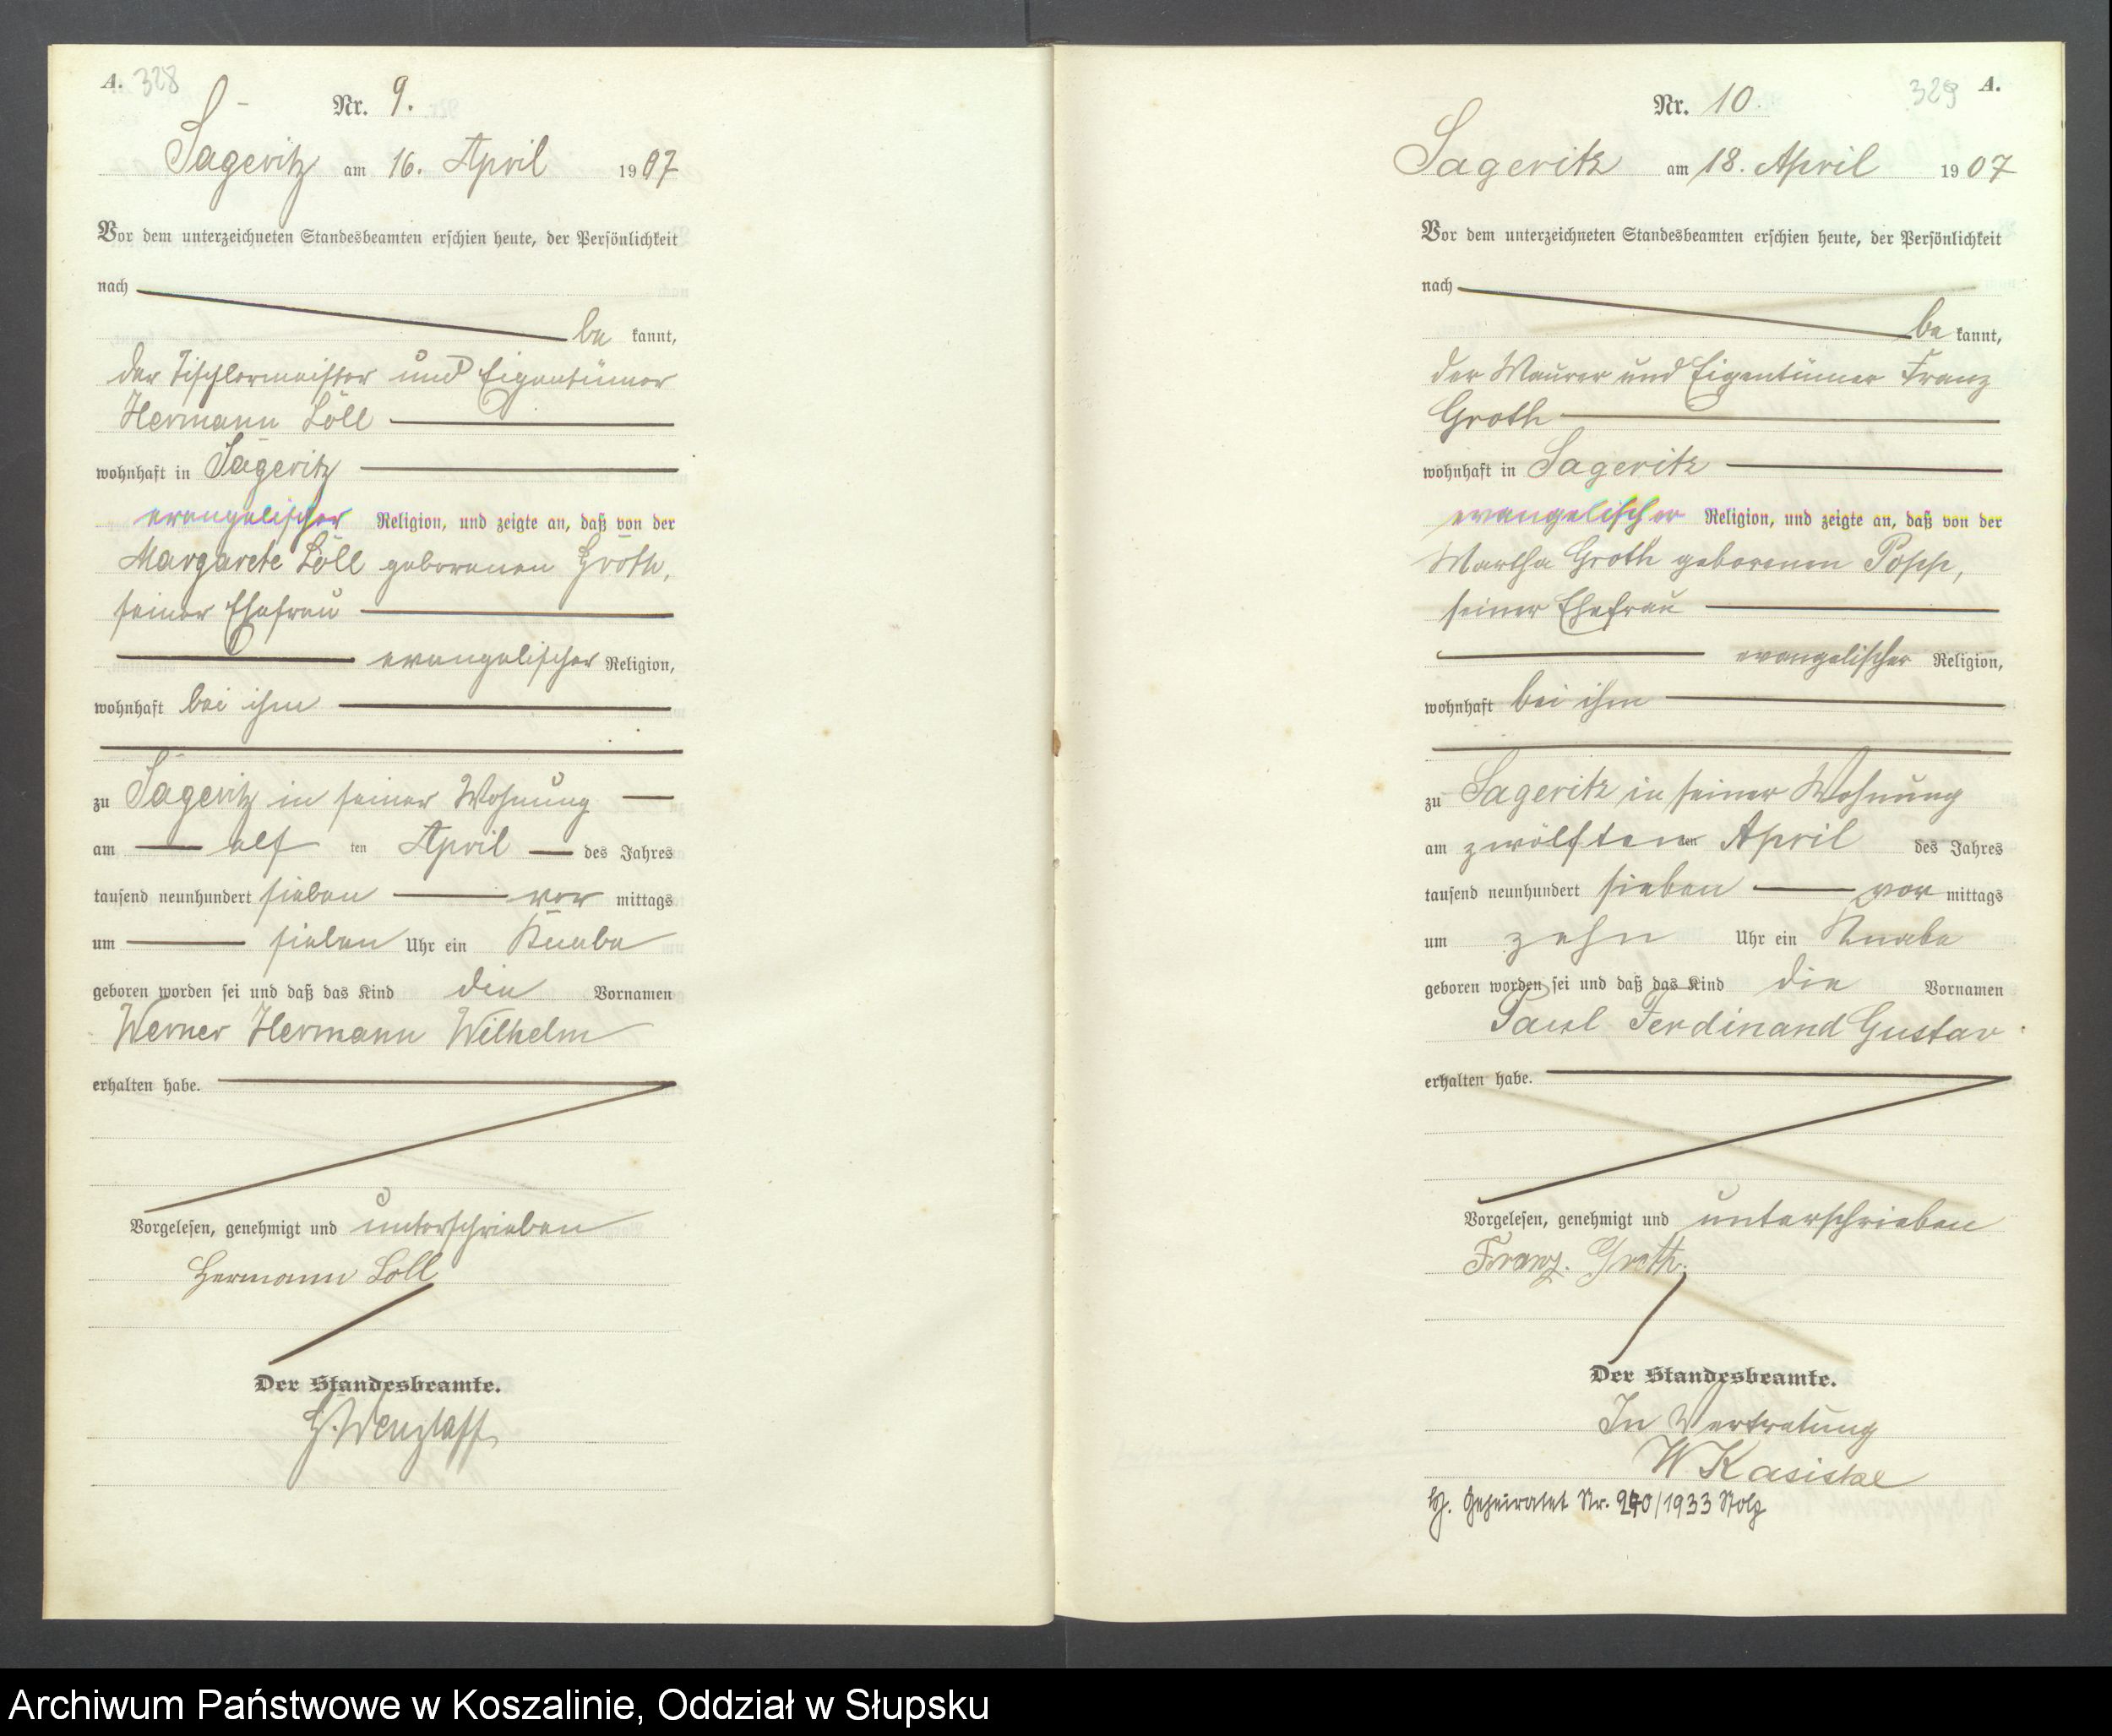 A. 328
Nr. 9.
Sageritz am 16. April 1907
Vor dem unterzeichneten Standesbeamten erschien heute, der Persönlichkeit
nach
be kannt,
der Tischlermeister und Eigentümer
Hermann Löll
wohnhaft in Sageritz
evangelischer Religion, und zeigte an, daß von der
Margarete Löll geborenen Groth,
seiner Ehefrau
evangelischer Religion,
wohnhaft bei ihm
zu Sageritz in seiner Wohnung
am elf ten April des Jahres
tausend neunhundert sieben vor mittags
um sieben Uhr ein Knabe
geboren worden sei und daß das Kind die Vornamen
Werner Hermann Wilhelm
erhalten habe.
Vorgelesen, genehmigt und unterschrieben
Hermann Löll
Der Standesbeamte.
Wenzlaff
329 A.
Nr. 10.
Sageritz am 18. April 1907
Vor dem unterzeichneten Standesbeamten erschien heute, der Persönlichkeit
nach
be kannt,
der Maurer und Eigentümer Franz
Groth
wohnhaft in Sageritz
evangelischer Religion, und zeigte an, daß von der
Martha Groth geborenen Popp,
seiner Ehefrau
evangelischer Religion,
wohnhaft bei ihm
zu Sageritz in seiner Wohnung
am zwölften ten April des Jahres
tausend neunhundert sieben vor mittags
um zehn Uhr ein Knabe
geboren worden sei und daß das Kind die Vornamen
Paul Ferdinand Gustav
erhalten habe.
Vorgelesen, genehmigt und unterschrieben
Franz. Groth.
Der Standesbeamte.
In Vertretung
W Kasiske
H. Geheiratet Nr. /1933 Stolp
Archiwum Państwowe w Koszalinie, Oddział w Słupsku